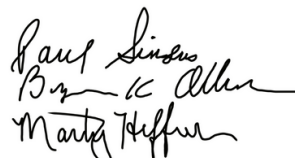 Paul Singer
Bryan K Allen
Marty Heffner